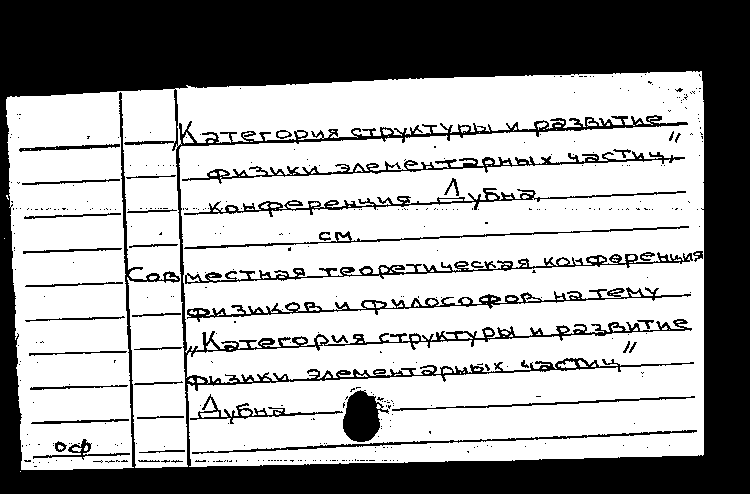 „Категория структуры и развитие
физики элементарных частиц,"
конференция. Дубна,
см.
Совместная теоретическая конференция
физиков и философов на тему
„Категория структуры и развитие
физики элементарных частиц"
Дубна
осф